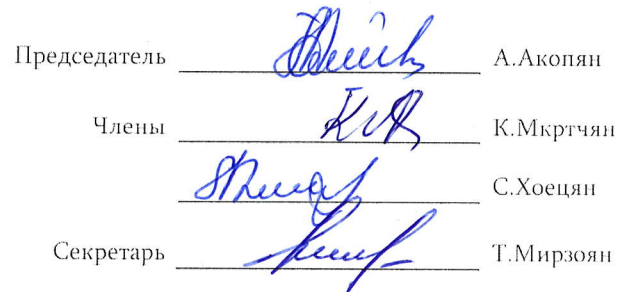 Председатель А.Акопян
Члены К.Мкртчян
С.Хоецян
Секретарь Т.Мирзоян